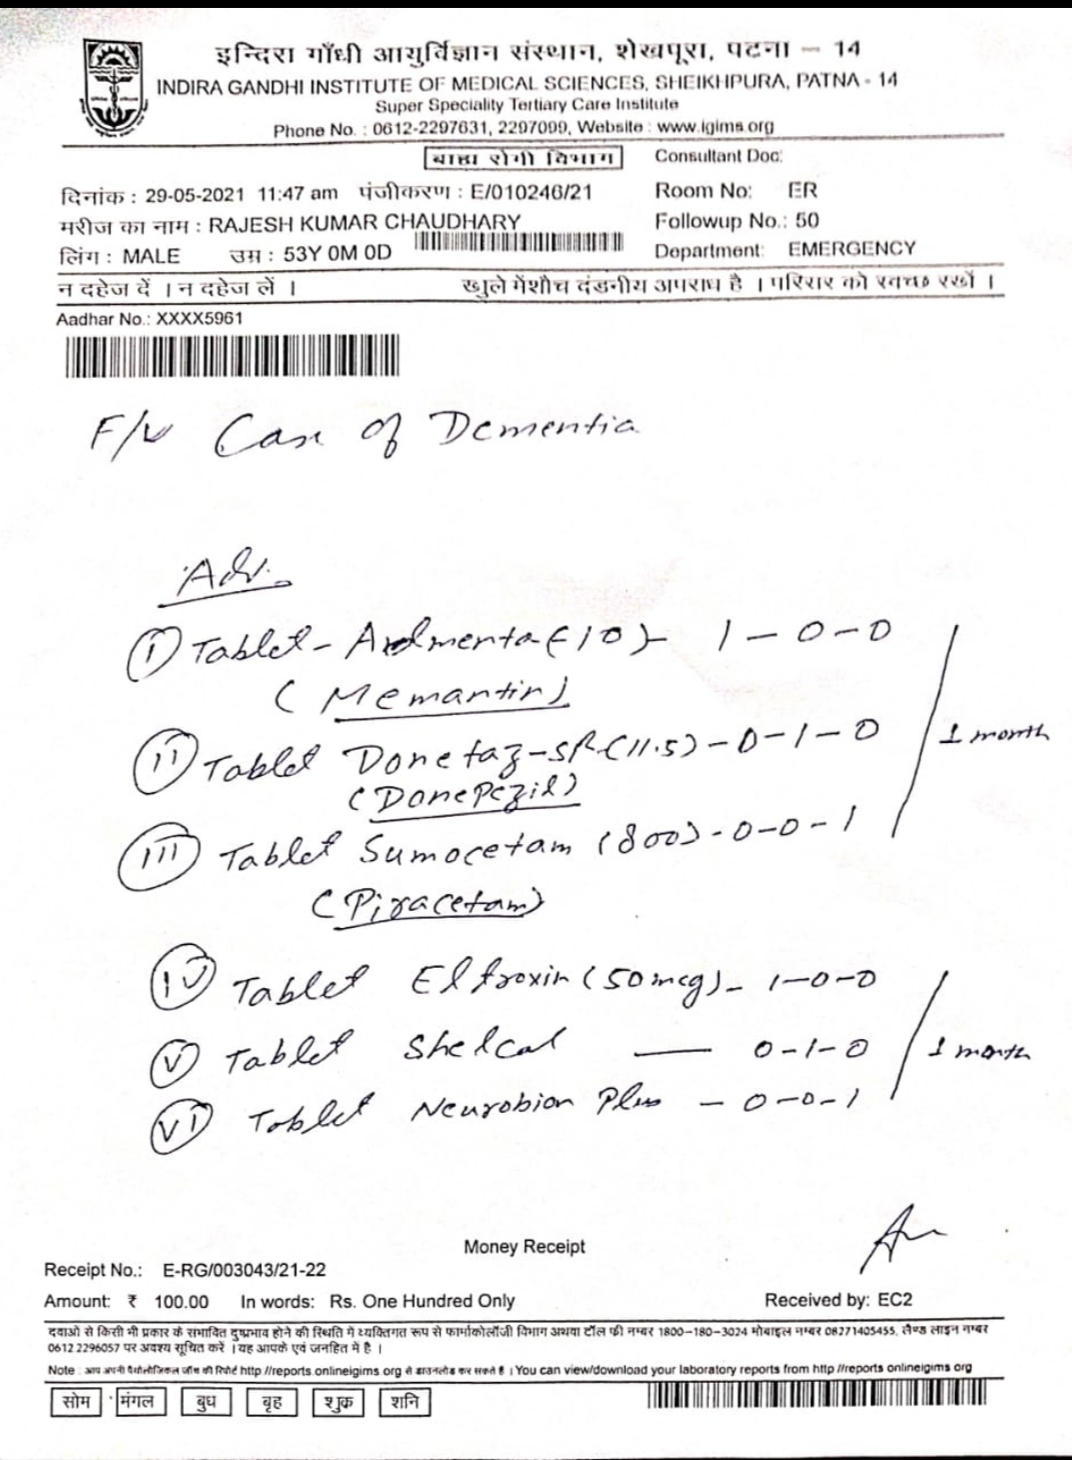 इन्दिरा गाँधी आयुर्विज्ञान संस्थान, शेखपूरा, पटना – 14
INDIRA GANDHI INSTITUTE OF MEDICAL SCIENCES, SHEIKHPURA, PATNA - 14
Super Speciality Tertiary Care Institute
Phone No. : 0612-2297631, 2297099, Website : www.igims.org
बाह्य रोगी विभाग Consultant Doc:
दिनांक : 29-05-2021 11:47 am पंजीकरण : E/010246/21 Room No: ER
मरीज का नाम : RAJESH KUMAR CHAUDHARY Followup No.: 50
लिंग : MALE उम्र : 53Y 0M 0D Department: EMERGENCY
न दहेज दें । न दहेज लें । खुले में शौच दंडनीय अपराध है । परिसर को स्वच्छ रखें ।
Aadhar No.: XXXX5961
F/U Case of Dementia
Adv.
(i) Tablet - Admenta (10) - 1 - 0 - 0
(Memantin)
(ii) Tablet Donetaz-SR (11.5) - 0 - 1 - 0 1 month
(Donepezil)
(iii) Tablet Sumocetam (800) - 0 - 0 - 1
(Piracetam)
(iv) Tablet Eltroxin (50 mcg) - 1-0-0
(v) Tablet Shelcal — 0-1-0 1 month
(vi) Tablet Neurobion Plus - 0-0-1
Money Receipt
Receipt No.: E-RG/003043/21-22
Amount: ₹ 100.00 In words: Rs. One Hundred Only Received by: EC2
दवाओं से किसी भी प्रकार के संभावित दुष्प्रभाव होने की स्थिति में व्यक्तिगत रूप से फार्माकोलॉजी विभाग अथवा टॉल फ्री नम्बर 1800-180-3024 मोबाइल नम्बर 08271405455, लैण्ड लाइन नम्बर
0612 2296057 पर अवश्य सूचित करें । यह आपके एवं जनहित में है ।
Note : आप अपनी पैथोलोजिकल जाँच की रिपोर्ट http //reports onlineigims org से डाउनलोड कर सकते है । You can view/download your laboratory reports from http //reports onlineigims org
सोम मंगल बुध बृह शुक्र शनि